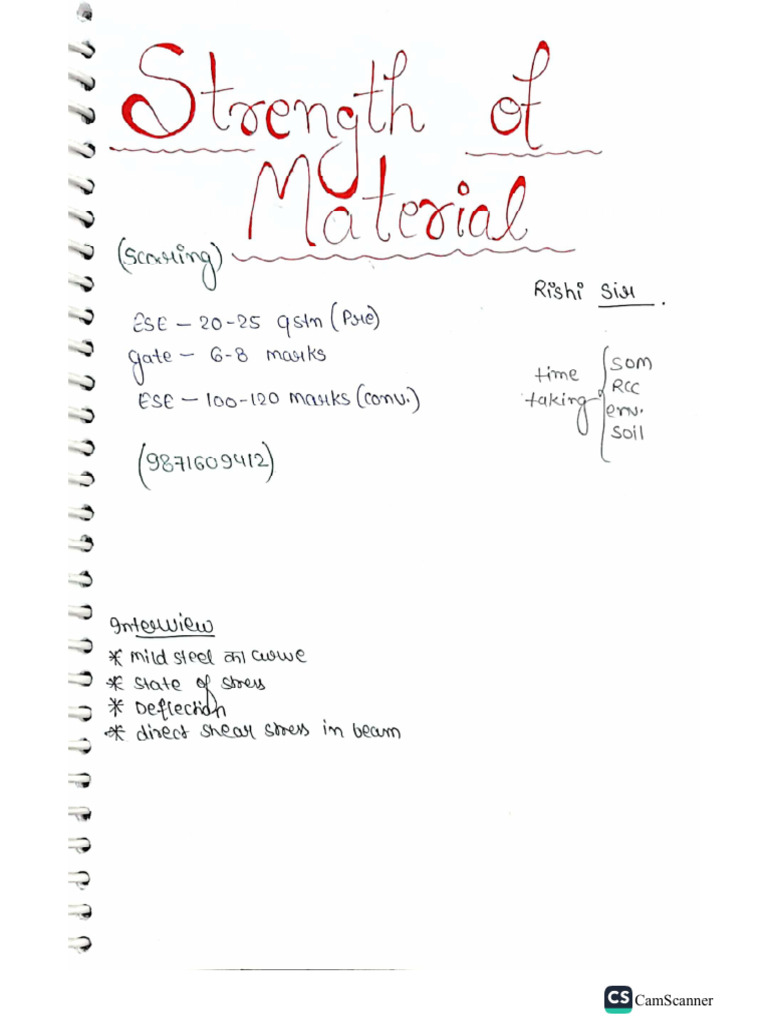 Strength of
Material
(Scoring)
Rishi Sir.
ESE - 20-25 qstn (Pre)
gate - 6-8 marks
ESE - 100-120 marks (conv.)
time taking { SOM
RCC
env.
Soil
(9871609412)
Interview
* mild steel का curve
* State of stress
* Deflection
* direct shear stress in beam
CS CamScanner